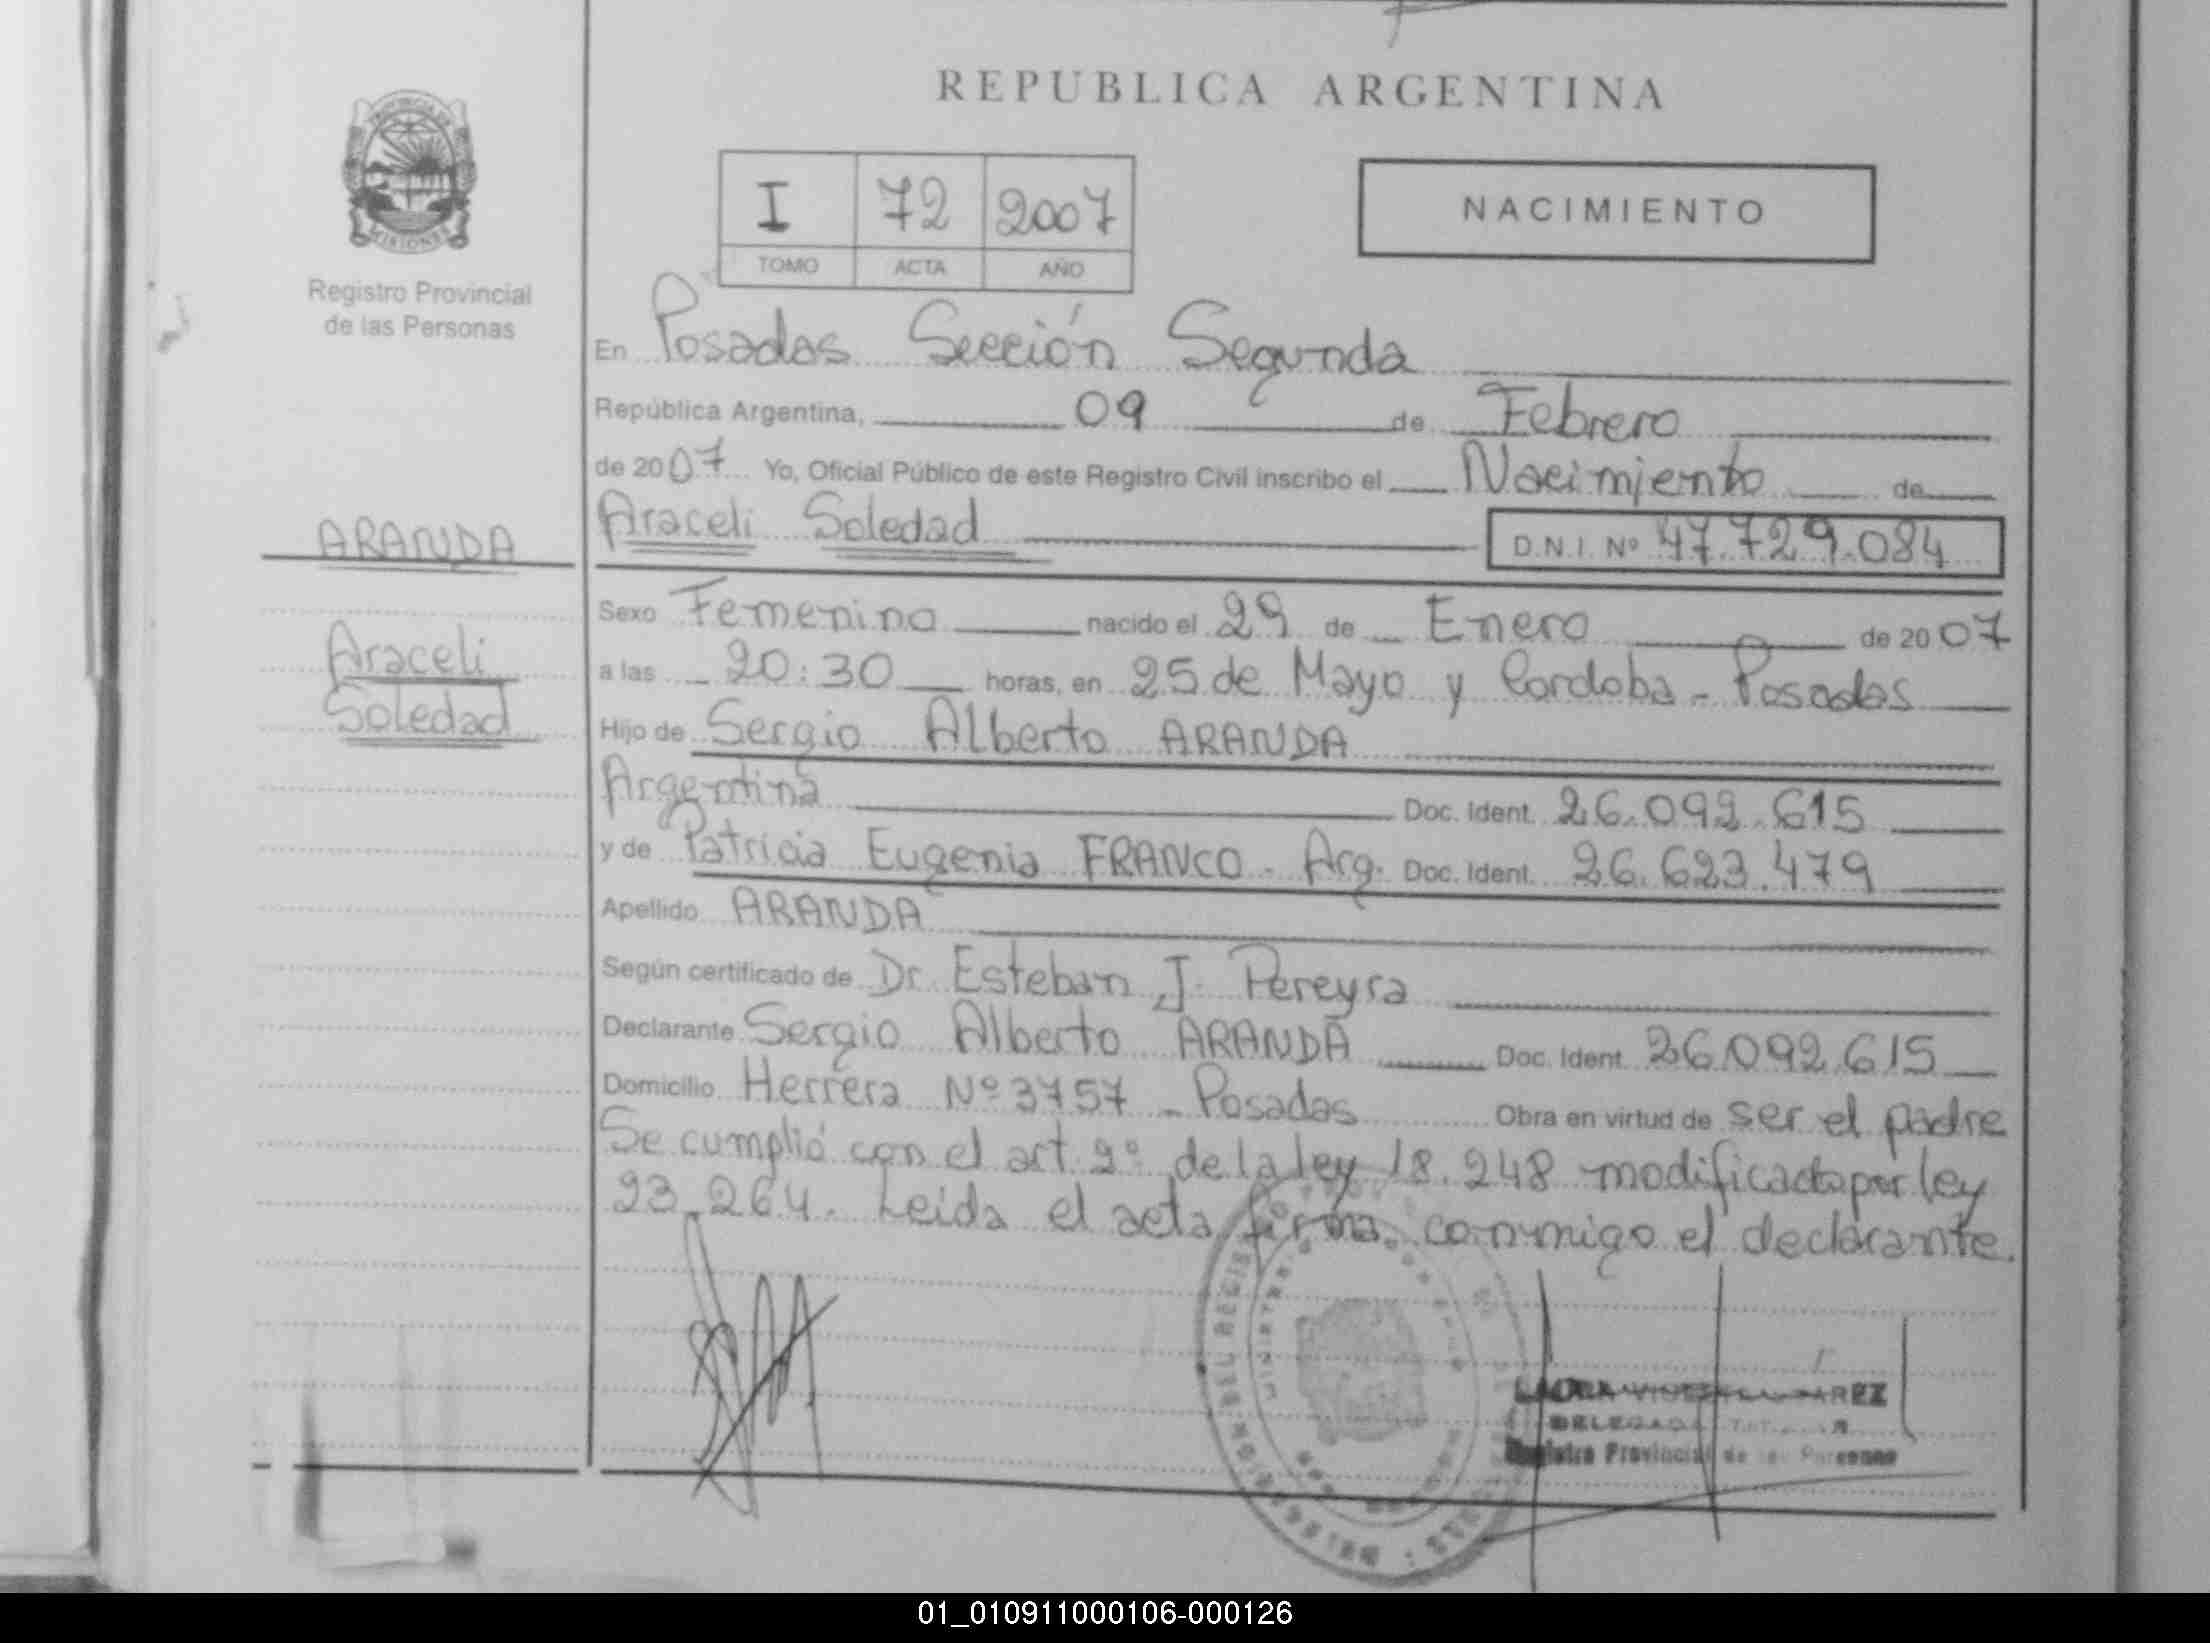 REPUBLICA ARGENTINA
PROVINCIA DE
MISIONES
Registro Provincial
de las Personas
I 72 2007
TOMO ACTA AÑO
NACIMIENTO
En Posadas Sección Segunda
República Argentina, 09 de Febrero
de 2007 Yo, Oficial Público de este Registro Civil inscribo el Nacimiento de
Araceli Soledad D.N.I. Nº 47.729.084
ARANDA
Araceli
Soledad
Sexo Femenino nacido el 29 de Enero de 2007
a las 20:30 horas, en 25 de Mayo y Cordoba - Posadas
Hijo de Sergio Alberto ARANDA
Argentina Doc. Ident. 26.092.615
y de Patricia Eugenia FRANCO - Arg. Doc. Ident. 26.623.479
Apellido ARANDA
Según certificado de Dr. Esteban J. Pereyra
Declarante Sergio Alberto ARANDA Doc. Ident. 26.092.615
Domicilio Herrera Nº 3757 - Posadas Obra en virtud de ser el padre
Se cumplió con el art. 2º de la ley 18.248 modificada por ley
23.264. Leida el acta firma conmigo el declarante.
DELEGADA
Registro Provincial de las Personas
01_010911000106-000126